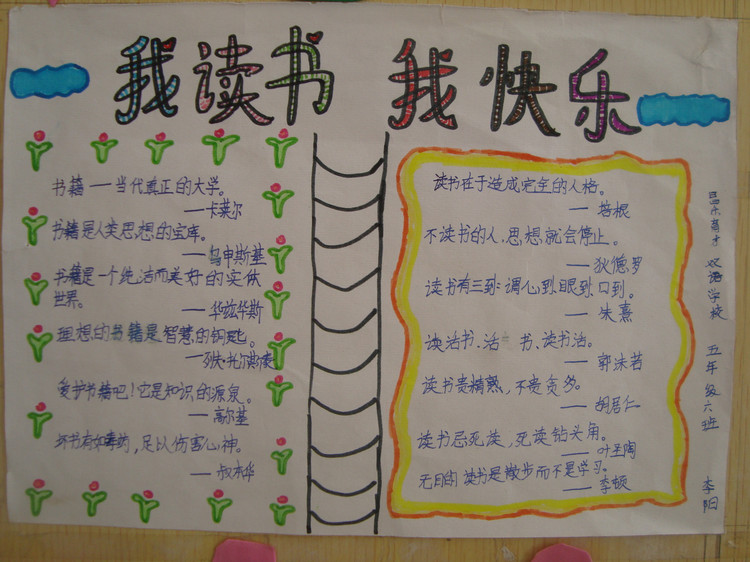 我读书 我快乐
书籍——当代真正的大学。
——卡莱尔
书籍是人类思想的宝库。
——乌申斯基
书籍是一个纯洁而美好的实体
世界。
——华兹华斯
理想的书籍是智慧的钥匙。
——列夫·托尔斯泰
爱护书籍吧！它是知识的源泉。
——高尔基
坏书有如毒药，足以伤害心神。
——叔本华
读书在于造成完全的人格。
——培根
不读书的人、思想就会停止。
——狄德罗
读书有三到：谓心到、眼到、口到。
——朱熹
读活书、活 书、读书活。
——郭沫若
读书贵精熟，不贵贪多。
——胡居仁
读书忌死读，死读钻头角。
——叶圣陶
无目的读书是散步而不是学习。
——李顿
育才双语学校 五年级六班 李阳